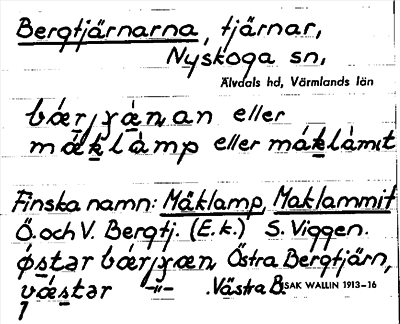 Bergtjärnarna, tjärnar,
Nyskoga sn,
Älvdals hd, Värmlands län
eller
måklåmp eller måklåmıt
Finska namn: Måklamp, Maklammit
Ö. och V. Bergtj. (E.k.) S. Viggen.
Östra Bergtjärn,
våstər -"- Västra B.
ISAK WALLIN 1913-16